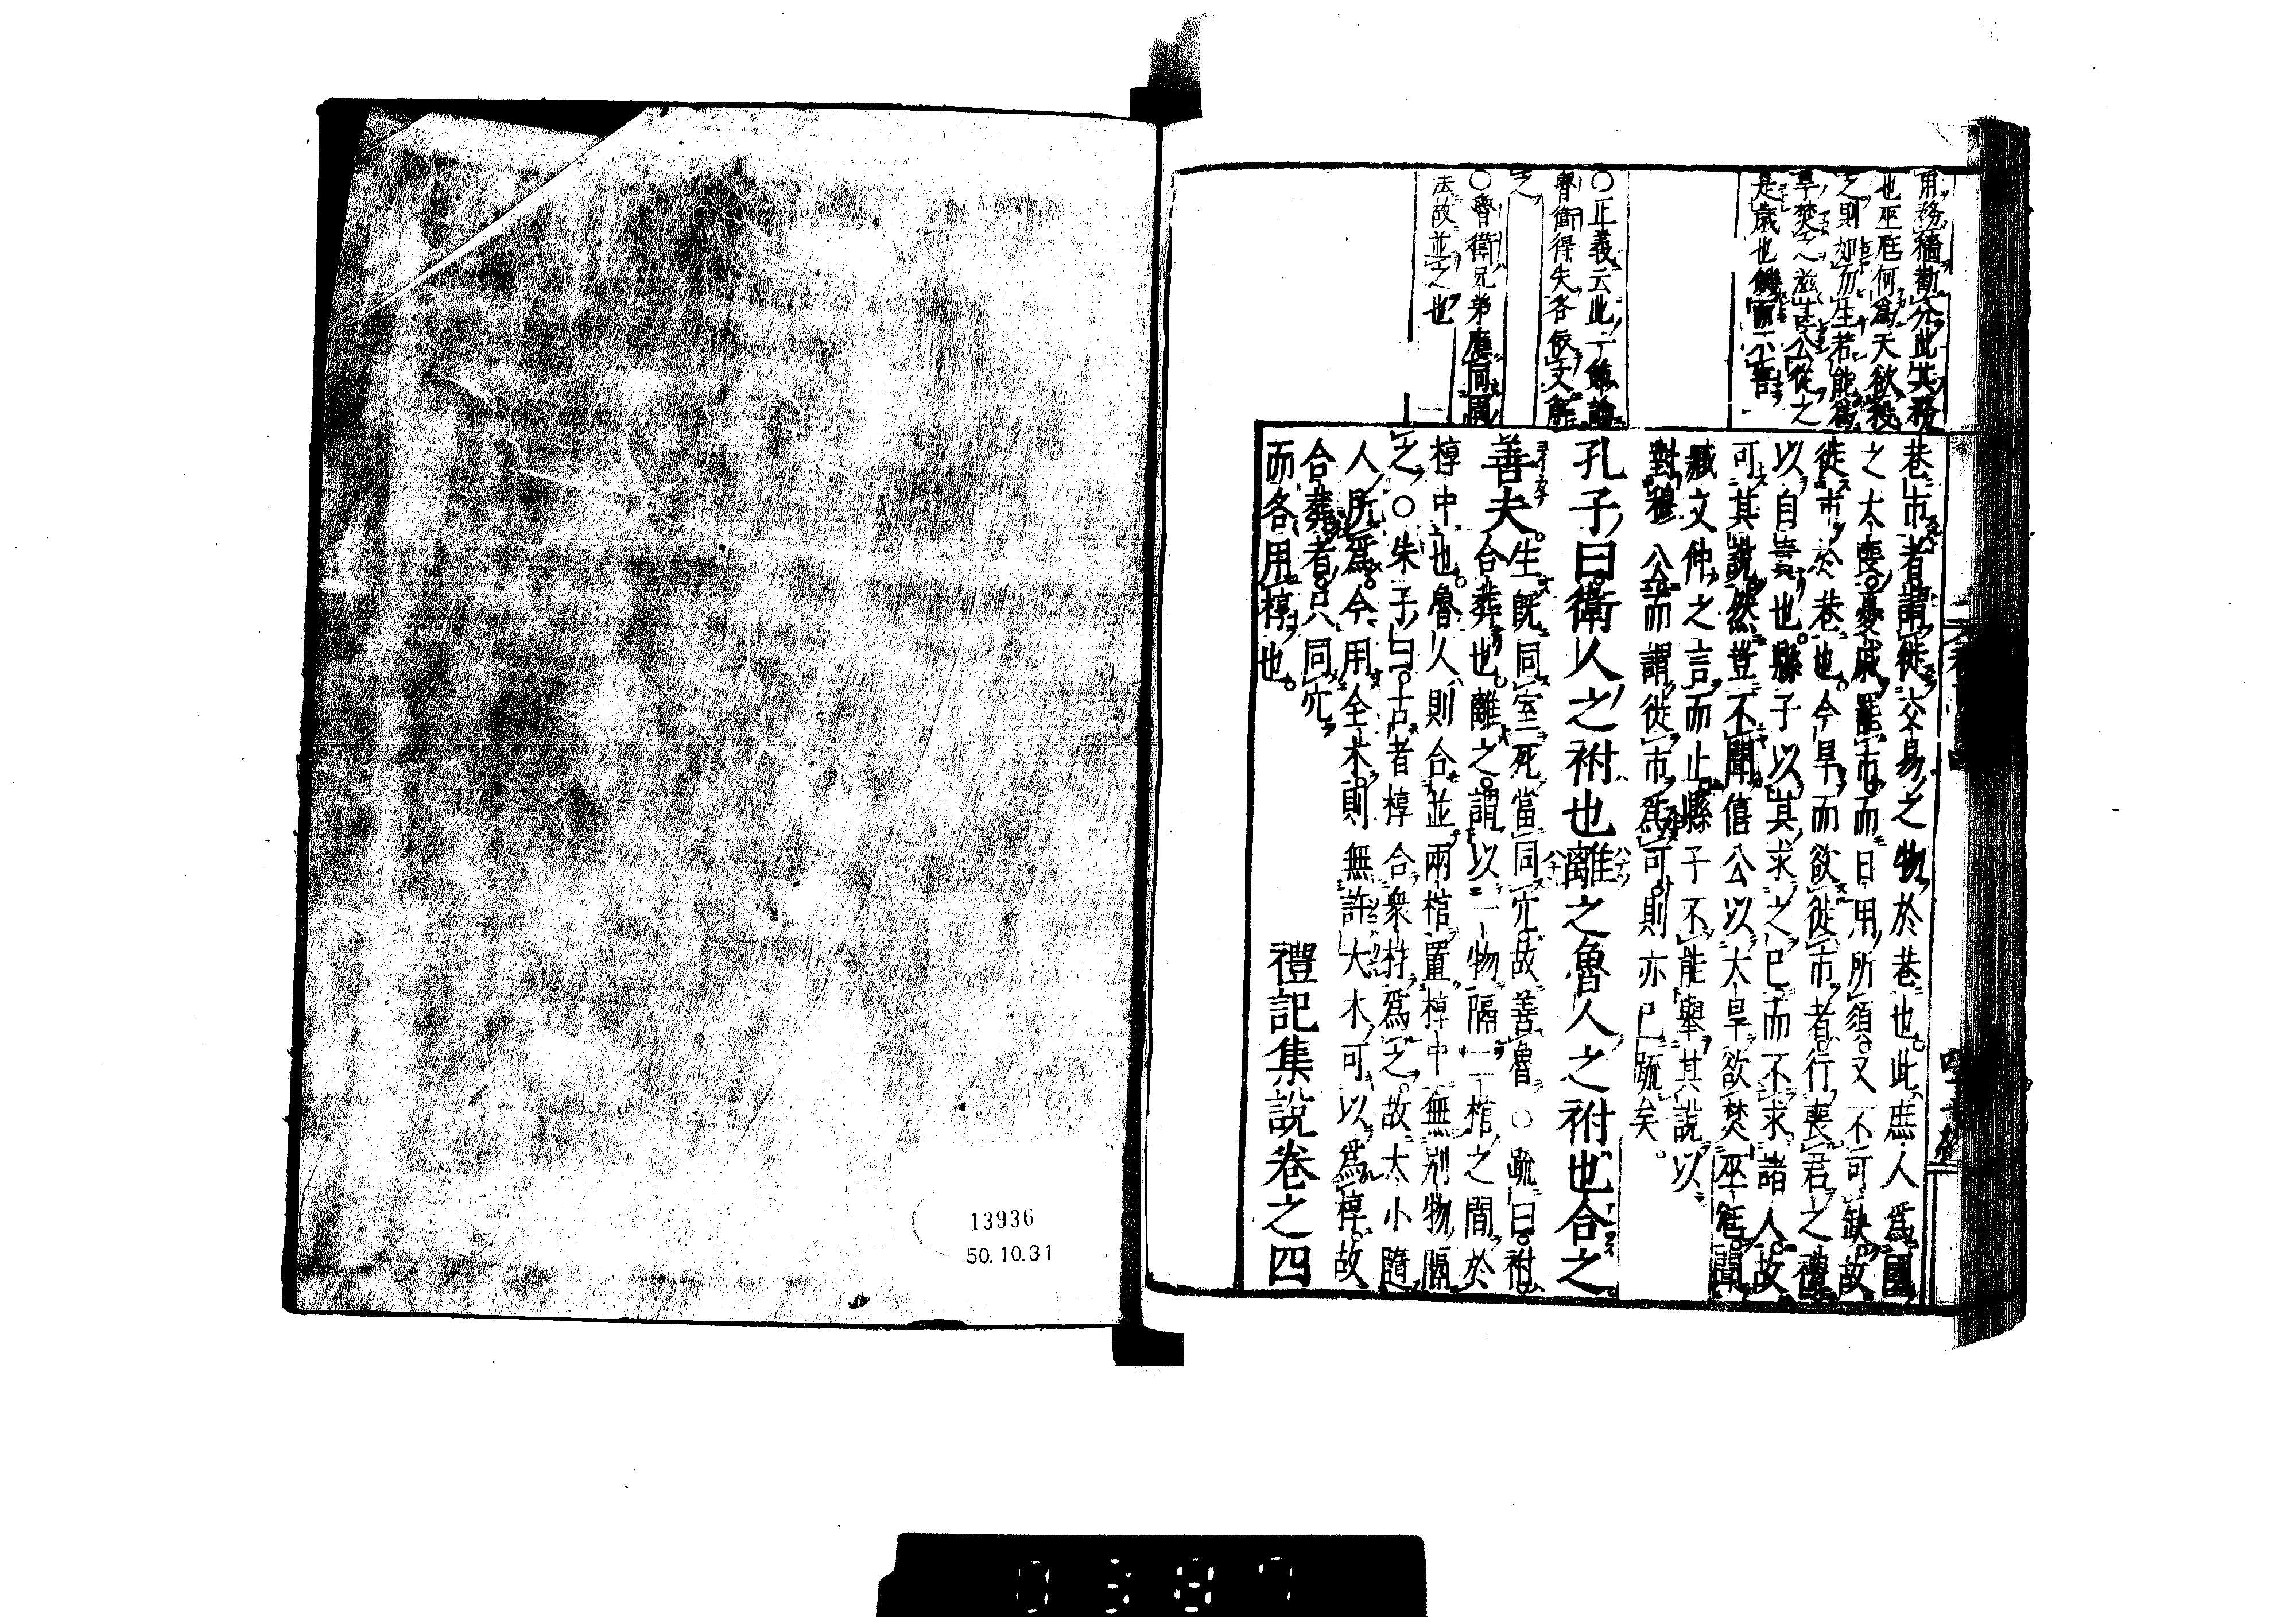 用務穡勸分此其務
也巫尪何爲天欲殺
之則如而生若能爲
旱焚之滋甚公從之
是歳也饑而不害
○正義云此一節論
魯衛得失各依文解
之
○魯衛兄弟應同周
法故並之也
巷市者謂徙交易之物於巷也此庶人爲國
之大喪憂戚罷市而日用所須又不可缺故
徙市於巷也今旱而欲徙市者行喪君之禮
以自責也縣子以其求之己而不求諸人故
可其說然豈不聞僖公以大旱欲焚巫尪聞
臧文仲之言而止縣子不能舉其說以
對穆公而謂徙市爲可則亦已疏矣
孔子曰衛人之祔也離之魯人之祔也合之
善夫生既同室死當同穴故善魯○疏曰祔
合葬也離之謂以一物隔二棺之間於
椁中也魯人則合並兩棺置椁中無別物隔
之○朱子曰古者椁合衆材爲之故大小隨
人所爲今用全木則無許大木可以爲椁故
合葬者只同穴
而各用椁也
禮記集說卷之四
13936
50.10.31
0387